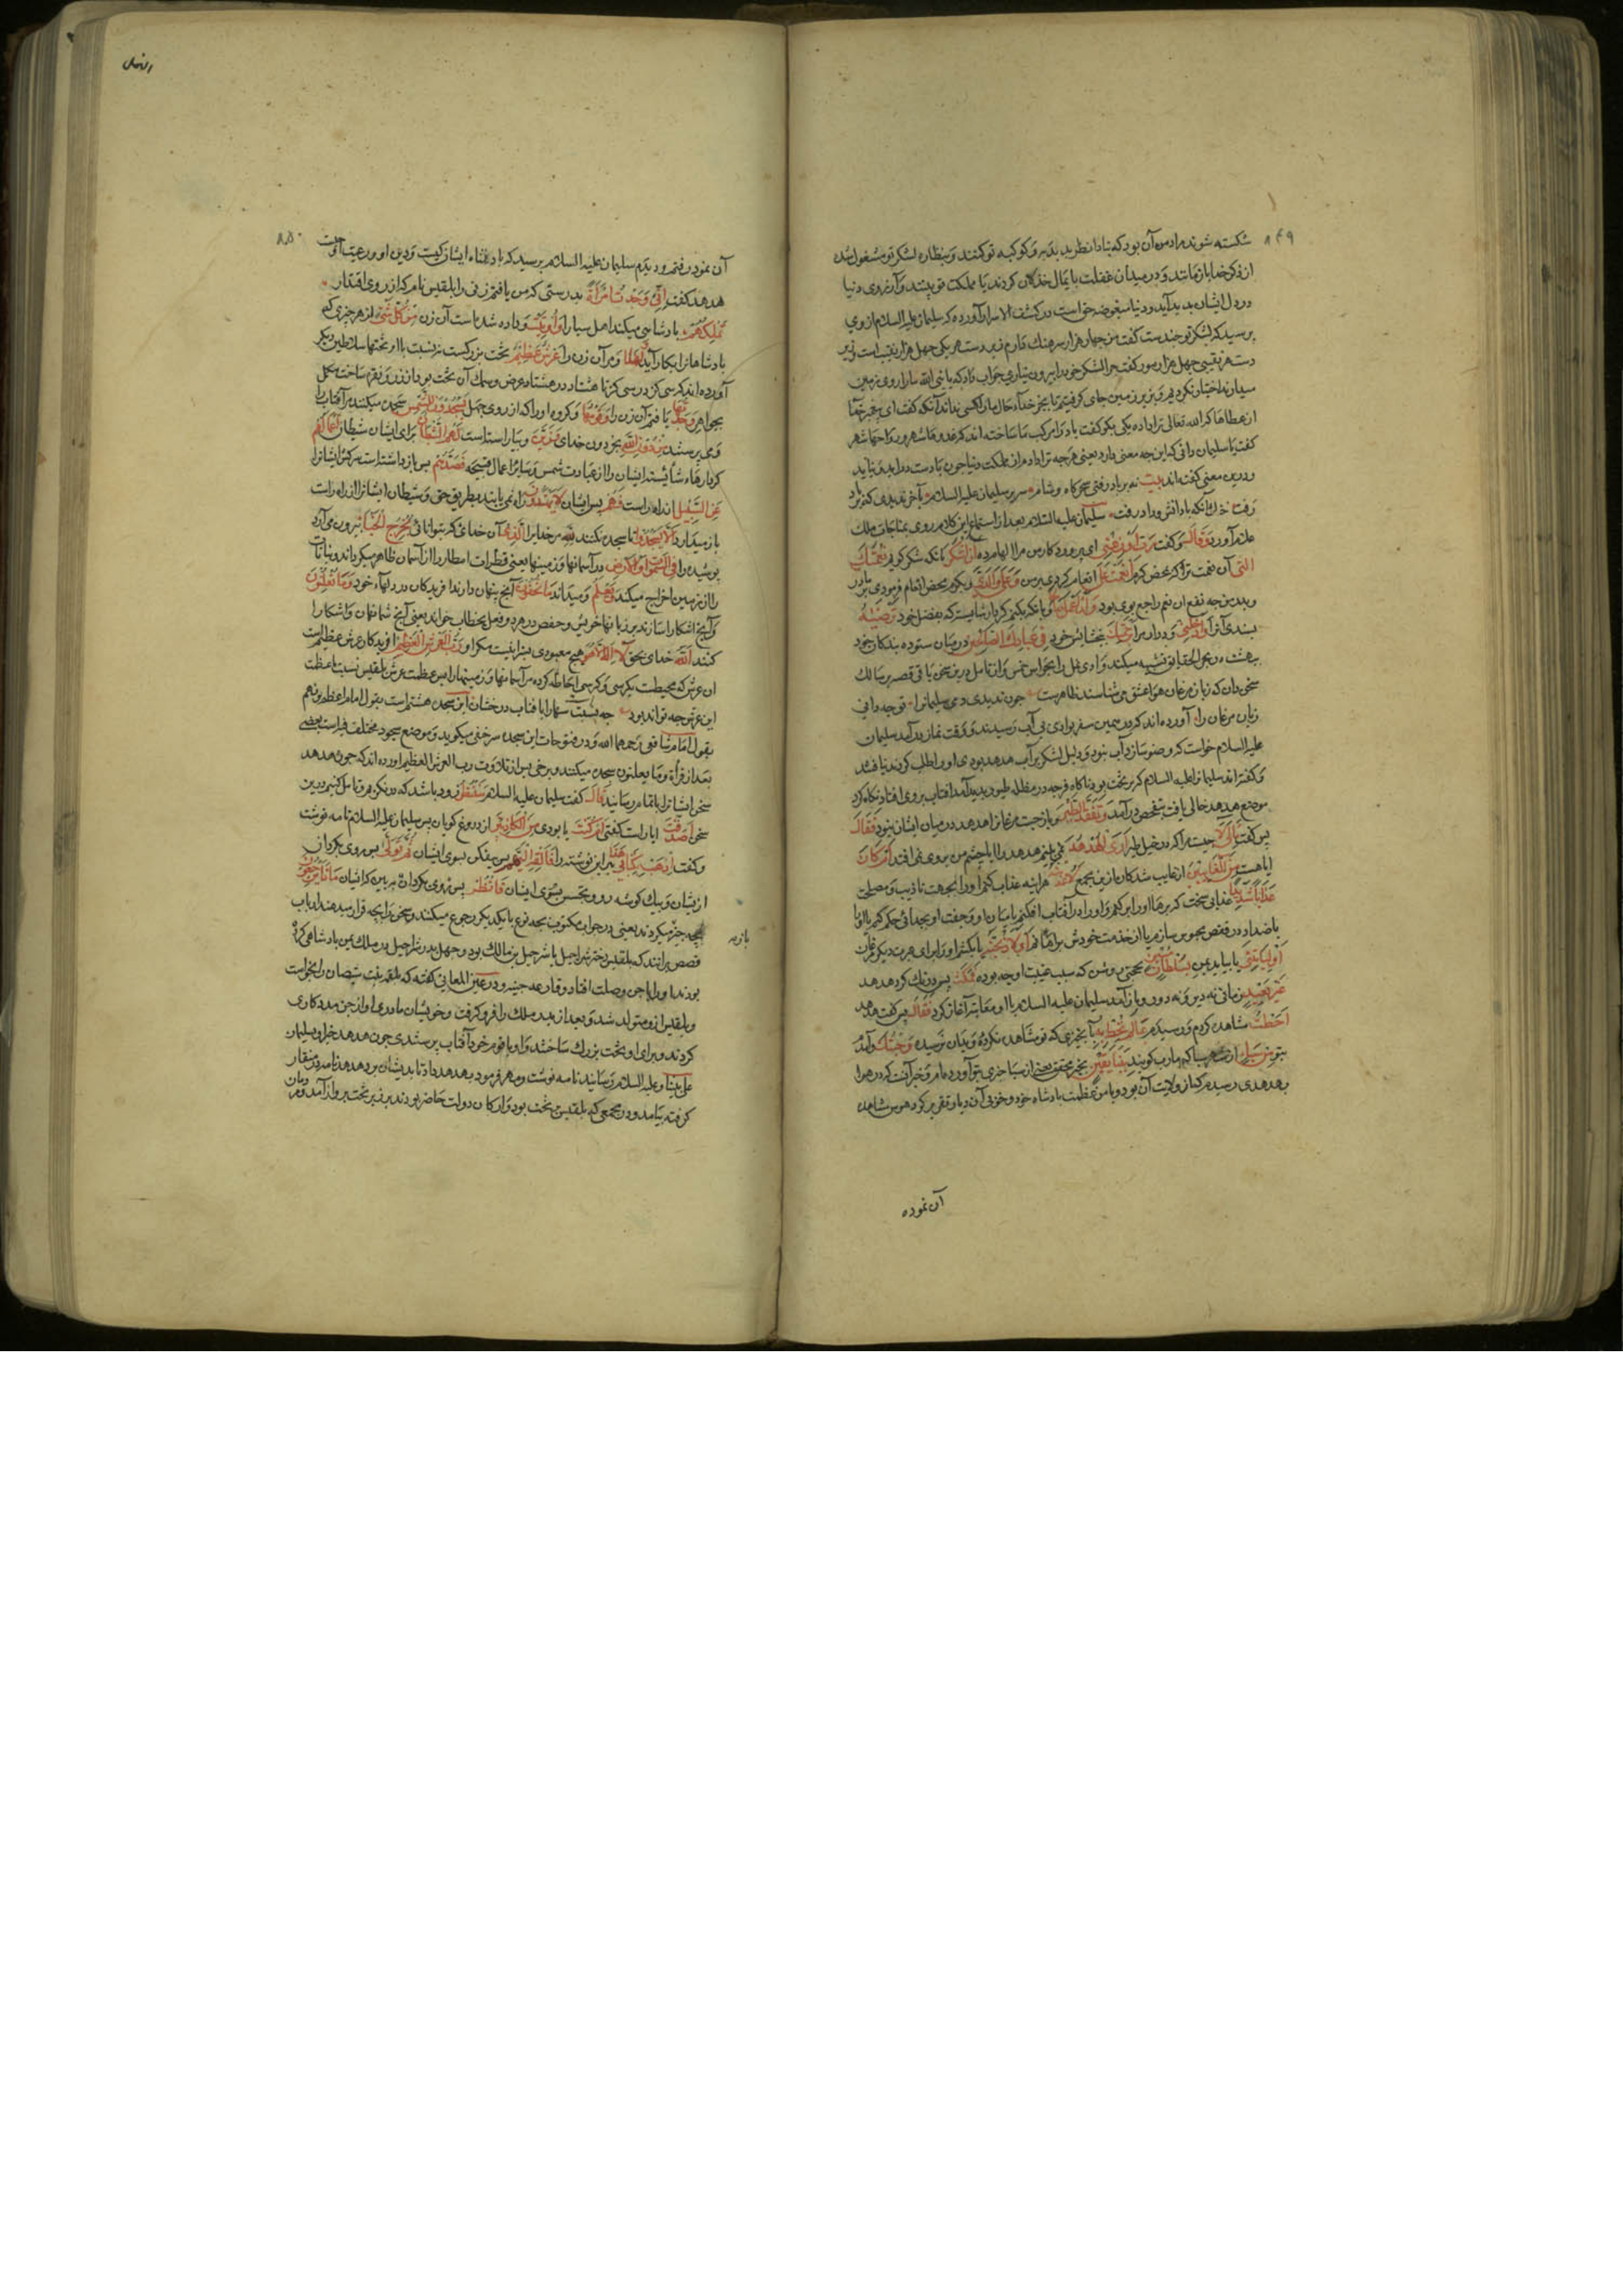 ۸۴۹
شکسته شوند مراد من آن بود که نبادا نظر بدبدبه و کوکبه تو کنند و بنظاره لشکر تو مشغول شده
از ذکر خدا بازمانند و در میدان غفلت پایمال خذلان کردند یا مملکت تو بینند و آرزوی دنیا
در دل ایشان پدید آید و دنیا مبغوضه حق است در کشف الاسرار آورده که سلیمان علیه السلام از وی
پرسید که لشکر تو چندست کفت من چهار هزار سرهنك دارم زیر دست هر یکی چهل هزار نقیب است و زیر
دست هر نقیبی چهل هزار مور کفت چرا لشکر خود را بیرون نیاری جواب داد که یا نبی الله ما را روی زمین
میدادند اختیار نکردیم و زیر زمین جای کرفتیم تا بجز خدا حال ما را کسی نداند آنکه کفت ای پیغمبر خدا
از عطاها که الله تعالی ترا داده یکی بکو کفت باد را مرکب ما ساخته اند که غدوها شهر و رواحها شهر
کفت یا سلیمان دانی که این چه معنی دارد یعنی هر چه ترا دادم از مملکت دنیا چون بادست درآید و نپاید
و درین معنی کفته اند بیت نه بر باد رفتی سحرکاه و شام سریر سلیمان علیه السلام بآخر ندیدی که بر باد
رفت خنك آنکه با دانش و داد رفت سلیمان علیه السلام بعد از استماع این کلام روی بمناجات ملك
علام آورد وَقَالَ و کفت رَبِّ أَوْزِعْنِي ای پروردکار من مرا الهام ده أَنْ أَشْكُرَ بآنکه شکر کویم نِعْمَتَكَ
الَّتِي آن نعمت ترا که بمحض کرم أَنْعَمْتَ عَلَيَّ انعام کردی بر من وَعَلَى وَالِدَيَّ و دیکر بمحض انعام فرمودی بر پدر
بدین وجه نفع آن بمن راجع بود وَأَنْ أَعْمَلَ صَالِحًا و بآنکه بکنم کردار شایسته که بفضل خود تَرْضَاهُ
بپسندی آنرا وَأَدْخِلْنِي و درآر مرا بِرَحْمَتِكَ ببخشایش خود فِي عِبَادِكَ الصَّالِحِينَ در میان ستوده بندکان خود
سخن دان که زبان مرغان هوا عشق می شناسند ظاهرست چون ندیدی دمی سلیمانرا تو چه دانی
زبان مرغان را آورده اند که در همین سفر بوادی بی آب رسیدند و وقت نماز درآمد سلیمان
علیه السلام خواست که وضو سازد آب نبود و دلیل لشکر بر آب هدهد بود او را طلب کردند نیافتند
و کفته اند سلیمان علیه السلام که بر تخت بود ناکاه فرجه در مظله طیور پدید آمد آفتاب بر وی افتاد نکاه کرد
موضع هدهد خالی یافت بتفحص درآمد وَتَفَقَّدَ الطَّيْرَ و بازجست مرغانرا هدهد در میان ایشان نبود فَقَالَ
پس کفت مَا لِيَ چیست مرا که در خیل طیر لَا أَرَى الْهُدْهُدَ نمی بینم هدهد را یا چشم من بر وی نمی افتد أَمْ كَانَ
آیا هست مِنَ الْغَائِبِينَ از غایب شدکان ازین مجمع لَأُعَذِّبَنَّهُ هرآینه عذاب کنم او را بجهت تأدیب و مصلحت
عَذَابًا شَدِيدًا عذابی سخت که پرها او را برکنم و او را در آفتاب افکنم
أَوْ لَيَأْتِيَنِّي یا بیاید بمن بِسُلْطَانٍ مُبِينٍ بحجتی روشن که سبب غیبت او چه بوده فَمَكَثَ پس درنك کرد هدهد
غَيْرَ بَعِيدٍ زمانی نه دیر و نه دور و باز آمد سلیمان علیه السلام با او معاتبه آغاز کرد فَقَالَ پس کفت هدهد
أَحَطْتُ مشاهده کردم و رسیدم بِمَا لَمْ تُحِطْ بِهِ بآنچیزی که تو مشاهده نکرده و بدان نرسیده وَجِئْتُكَ و آمدم
بتو مِنْ سَبَإٍ از شهر سبا که مارب کویند بِنَبَإٍ يَقِينٍ بخبر محقق یعنی از سبا خبری بتو آورده ام و خبر آنست که در هوا
بهدهدی رسیدم که از ولایت آن بود و با من عظمت پادشاه خود و خوبی آن دیار تقریر کرد هوس مشاهده
آن نموده
النمل
۸۵۰
آن نمود رفتم و دیدم سلیمان علیه السلام پرسید که پادشاه ایشان کیست و دین او و رعیت او چیست
هدهد کفت إِنِّي وَجَدْتُ امْرَأَةً بدرستی که من یافتم زنی را بلقیس نام که از روی اقتدار
تَمْلِكُهُمْ پادشاهی میکند اهل سبا را وَأُوتِيَتْ و داده شده است آن زن مِنْ كُلِّ شَيْءٍ از هر چیزی که
پادشاهانرا بکار آید وَلَهَا و مر آن زن را عَرْشٌ عَظِيمٌ تختی بزرکست نسبت با تختها سلاطین دیکر
آورده اند که سی کز در سی کز یا هشتاد در هشتاد عرض و سمك آن تخت بود از زر و نقره ساخته مکلل
بجواهر وَجَدْتُهَا یافتم آن زن را وَقَوْمَهَا و کروه او را که از روی جهل يَسْجُدُونَ لِلشَّمْسِ سجده میکنند مر آفتاب را
و می پرستند مِنْ دُونِ اللَّهِ بجز دون خدای وَزَيَّنَ و بیاراسته است لَهُمُ الشَّيْطَانُ برای ایشان شیطان أَعْمَالَهُمْ
کردارهاء ناشایسته ایشان را از عبادت شمس و سایر اعمال قبیحه فَصَدَّهُمْ پس بازداشته است سرکش ایشانرا
عَنِ السَّبِيلِ از راه راست فَهُمْ پس ایشان لَا يَهْتَدُونَ راه نمی یابند بطریق حق و شیطان ایشانرا از راه راست
باز میدارد أَلَّا يَسْجُدُوا تا سجده نکنند لِلَّهِ مر خدایرا الَّذِي آن خدای که بتوانائی يُخْرِجُ الْخَبْءَ بیرون می آرد
پوشیده را فِي السَّمَاوَاتِ وَالْأَرْضِ در آسمانها و زمینها یعنی قطرات امطار را از آسمان ظاهر میکرداند و نباتات
را از زمین اخراج میکند وَيَعْلَمُ و میداند مَا تُخْفُونَ آنچه پنهان دارند آفریدکان در دلهاء خود وَمَا تُعْلِنُونَ
و آنچه آشکارا سازند بر زبانها خویش و حفص در هر دو فعل بخطاب خواند یعنی آنچه شما نهان و آشکارا
کنند اللَّهُ خدای بحق لَا إِلَهَ إِلَّا هُوَ هیچ معبودی بسزا نیست مکر او رَبُّ الْعَرْشِ الْعَظِيمِ آفریدکار عرش عظیم است
آن عرش که محیطست بکرسی و کرسی احاطه کرده مر آسمانها و زمینها را پس عظمت عرش بلقیس نسبت با عظمت
این عرش چه تواند بود چه نسبت سها را با آفتاب درخشان این سجده هشتم است بقول امام اعظم و نهم
بقول امام شافعی رحمهما الله و در فتوحات این سجده سر خفی میکوید و موضع سجود مختلف فیه است بعضی
بعد از قراة وما یعلنون سجده میکنند و برخی پس از تلاوت رب العرش العظیم آورده اند که چون هدهد
سخن ایشانرا باتمام رسانید قَالَ کفت سلیمان علیه السلام سَنَنْظُرُ زود باشد که در نکریم و تامل کنیم درین
سخن أَصَدَقْتَ آیا راست کفتی أَمْ كُنْتَ یا بودی مِنَ الْكَاذِبِينَ از دروغ کویان پس سلیمان علیه السلام نامه نوشت
و کفت اذْهَبْ بِكِتَابِي هَذَا ببر این نوشته را فَأَلْقِهْ إِلَيْهِمْ پس بیفکن بسوی ایشان ثُمَّ تَوَلَّ پس روی بکردان
از یشان و بیك کوشه رو و بتجسس بسوی ایشان فَانْظُرْ پس ببین که ایشان مَاذَا يَرْجِعُونَ
بچه چیز میکردند یعنی در جواب مکتوب بچه نوع با یکدیکر رجوع میکنند و سخن را بچه قرار میدهند ارباب
قصص برانند که بلقیس دختر شراحیل یا شرحیل بن مالك بود و چهل پدر شراحیل در ملك یمن پادشاهی کرده
بودند او را با جن وصلت افتاد و در عین المعانی کفته که
و بلقیس از و متولد شد و بعد از پدر ملك را فرو کرفت و خویشان مادری او از جن مددکاری
کردند و برای او تخت بزرك ساختند و او با قوم خود آفتاب پرستیدی چون هدهد خبر او بسلیمان
علی نبینا و علیه السلام رسانید نامه نوشت و مهر فرمود بهدهد داد تا بدیشان برد هدهد نامه در منقار
کرفته بیامد و در مجمعی که بلقیس بر تخت بود و ارکان دولت حاضر بودند بر زبر تخت پرواز آمد